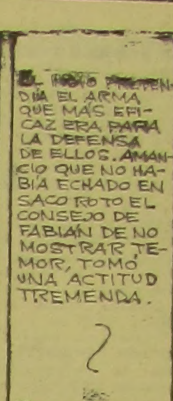 EL
DÍA EL ARMA
QUE MÁS EFI-
CAZ ERA PARA
LA DEFENSA
DE ELLOS. AMAN-
CIO QUE NO HA-
BÍA ECHADO EN
SACO ROTO EL
CONSEJO DE
FABIÁN DE NO
MOSTRAR TE-
MOR, TOMÓ
UNA ACTITUD
TREMENDA.